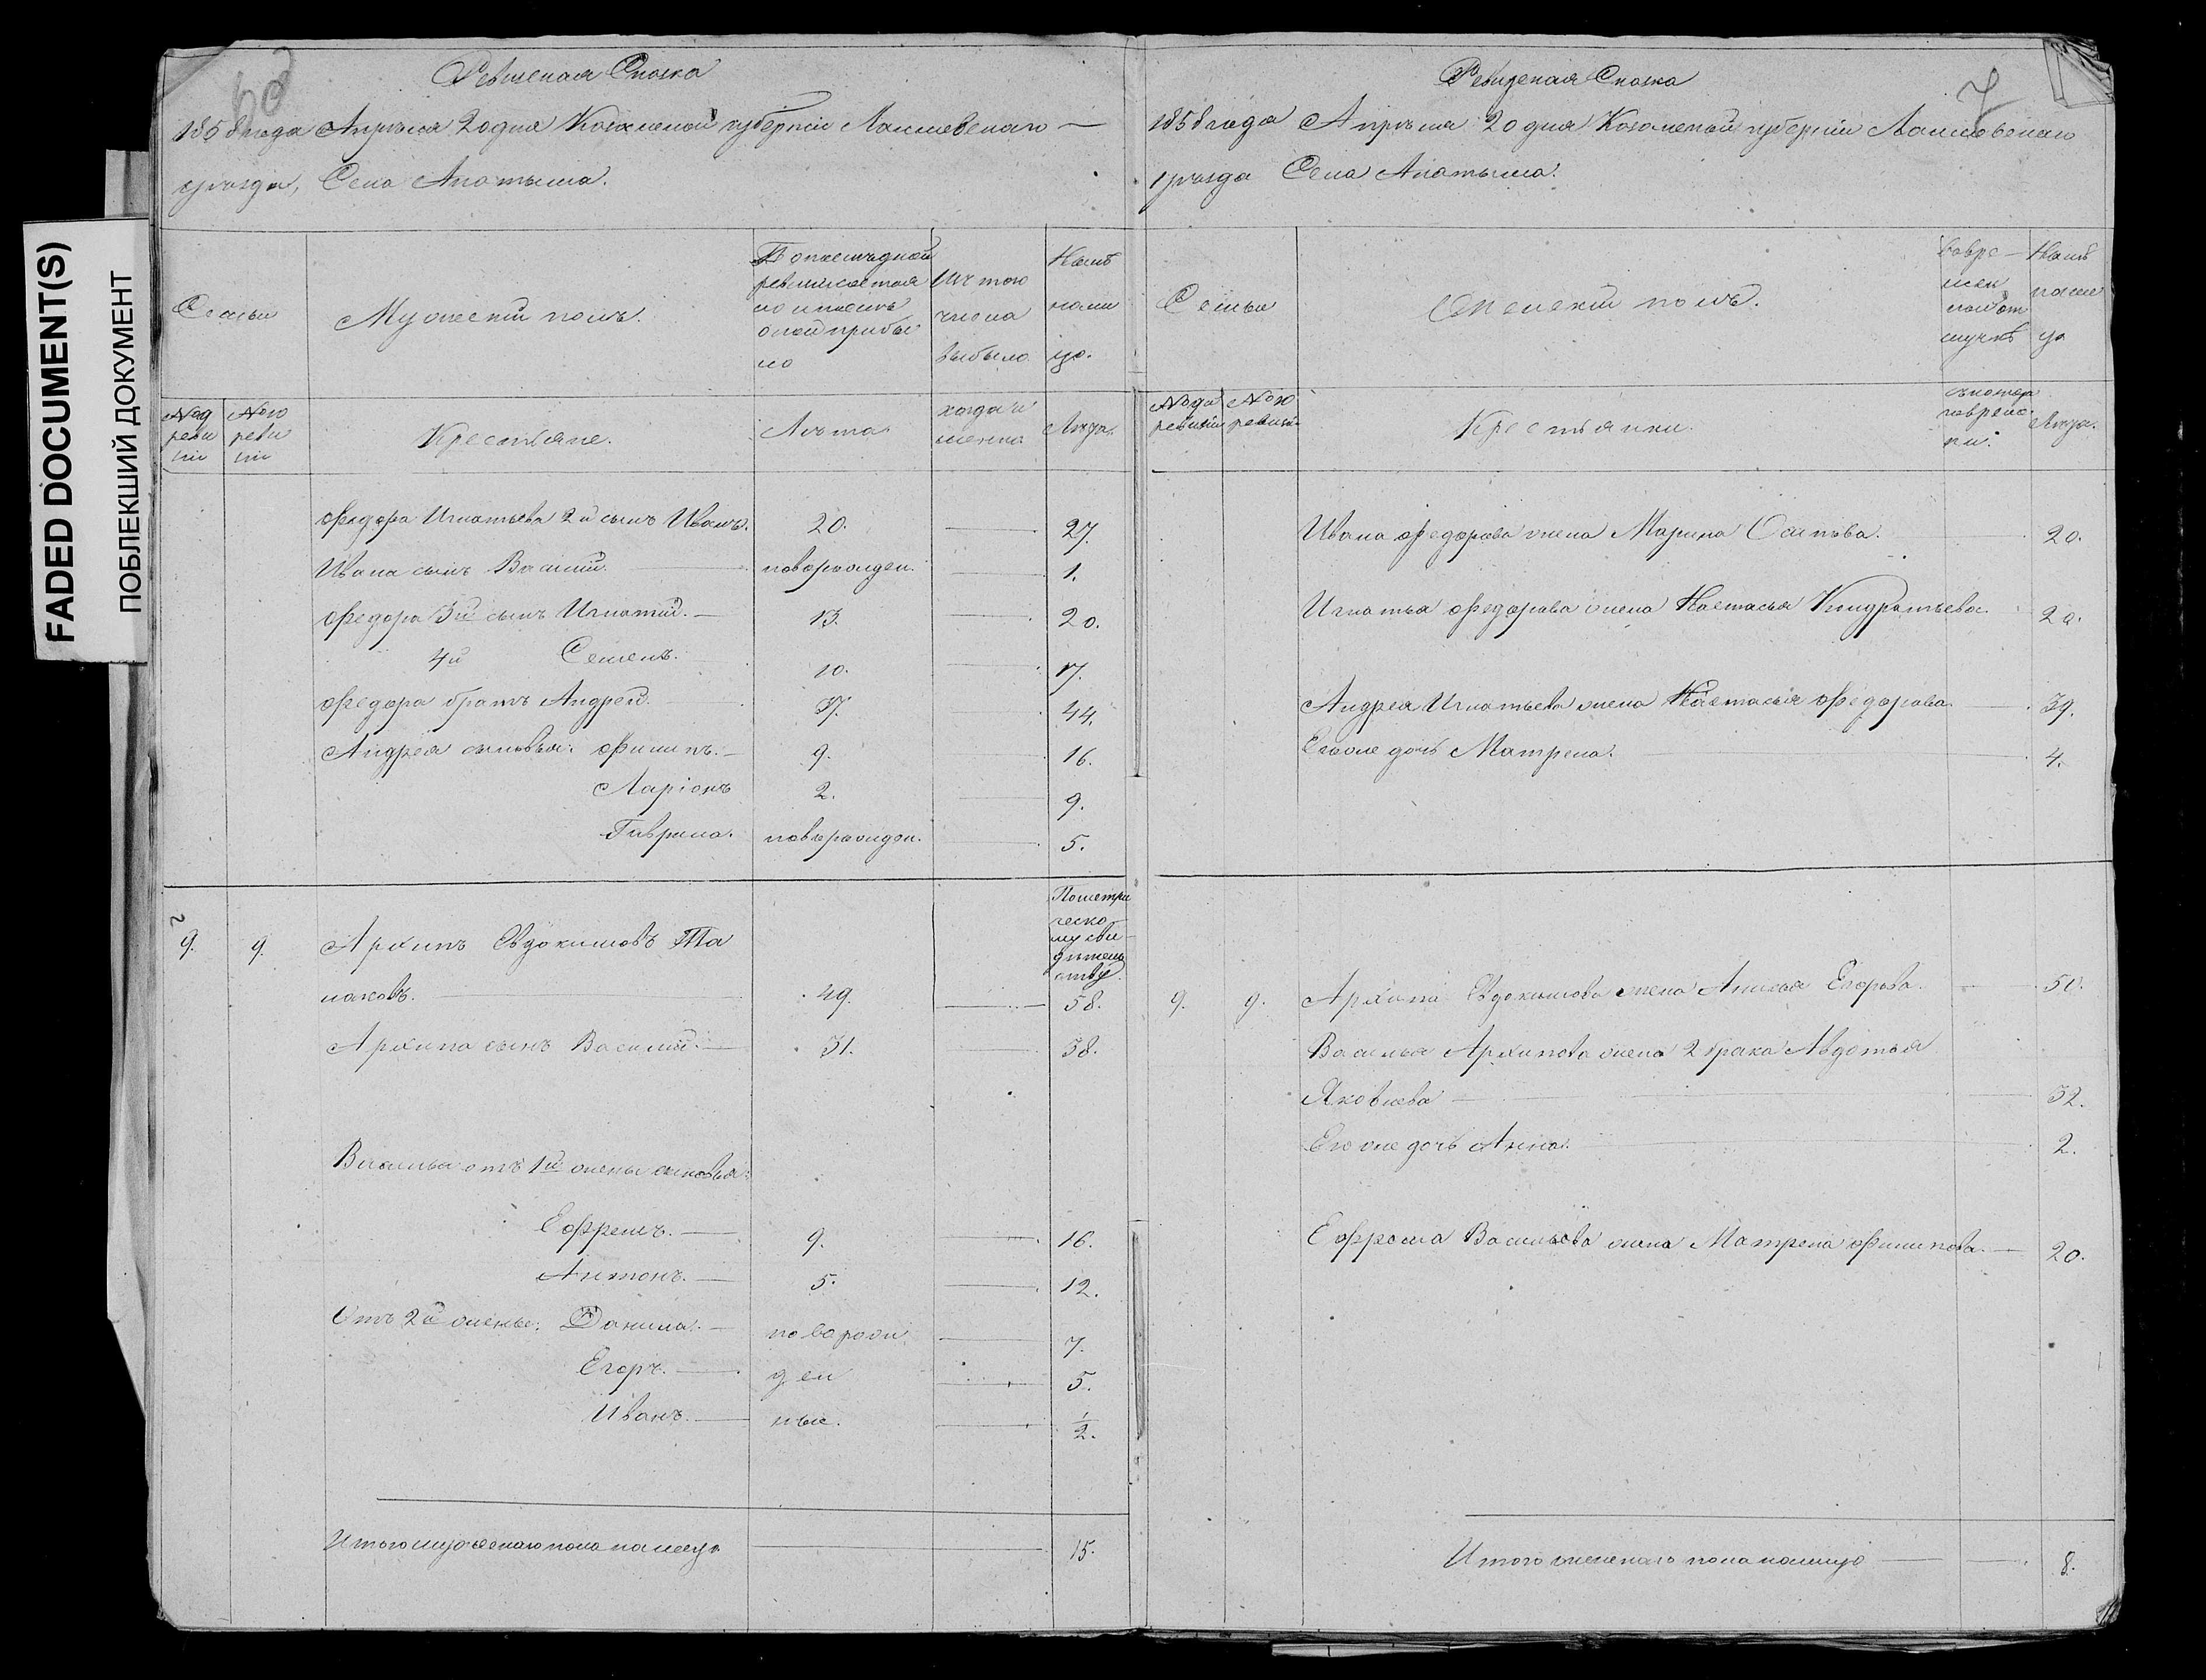 FADED DOCUMENT(S)
ПОБЛЕКШИЙ ДОКУМЕНТ
Ревизская Сказка
1858 года Апрѣля 20 дня Казанской губерніи Лаишевскаго
уѣзда, Села Апатыша.
Семьи
Мужескій полъ.
По послѣдней
ревизіи состоя
ло и послѣ
оной прибы
ло
Изъ того
числа
выбыло
Нынѣ
нали
цо.
№ 8й
реви
зіи
№ 10
реви
зіи
Крестьяне.
Лѣта
когда и
именно
Лѣта.
Федора Игнатьева 2й сынъ Иванъ. 20. 27.
Ивана сынъ Василій. новорожден. 1.
Федора 3й сынъ Игнатій. 13. 20.
4й Семенъ. 10. 17.
Федора братъ Андрей. 37. 44.
Андрея сыновья: Филипъ. 9. 16.
Ларіонъ 2. 9.
Гаврила. новорожден. 5.
По метри
ческо
му сви
дѣтель
ству
9. 9. Архипъ Евдокимовъ
49. 58.
Архипа сынъ Василій. 31. 38.
Василья отъ 1й жены сыновья:
Ефремъ. 9. 16.
Антонъ. 5. 12.
Отъ 2й жены: Данила. новорож 7.
Егоръ. ден 5.
Иванъ. ные. 1/2.
Итого мужескаго пола на лицо 15.
7
Ревизская Сказка
1858 года Апрѣля 20 дня Казанской губерніи Лаишевскаго
уѣзда Села Апатыша.
Семьи
Женскій полъ.
Во вре
мен
ной от
лучкѣ
Нынѣ
нали
цо
ревизіи
№ 10
ревизіи
Крестьянки.
съ котора
го време
ни.
Лѣта.
Ивана Федорова жена Марина Осипова. 20.
Игнатья Федорова жена Настасья Кондратьева. 20.
Андрея Игнатьева жена Настасья Федорова. 39.
Егоже дочь Матрена. 4.
9. 9. Архипа Евдокимова жена Агилья Егорова. 50.
Василья Архипова жена 2 брака Авдотья
Яковлева 32.
Егоже дочь Анна. 2.
Ефрема Васильева жена Матрена Филипова. 20.
Итого женскаго пола налицо 8.